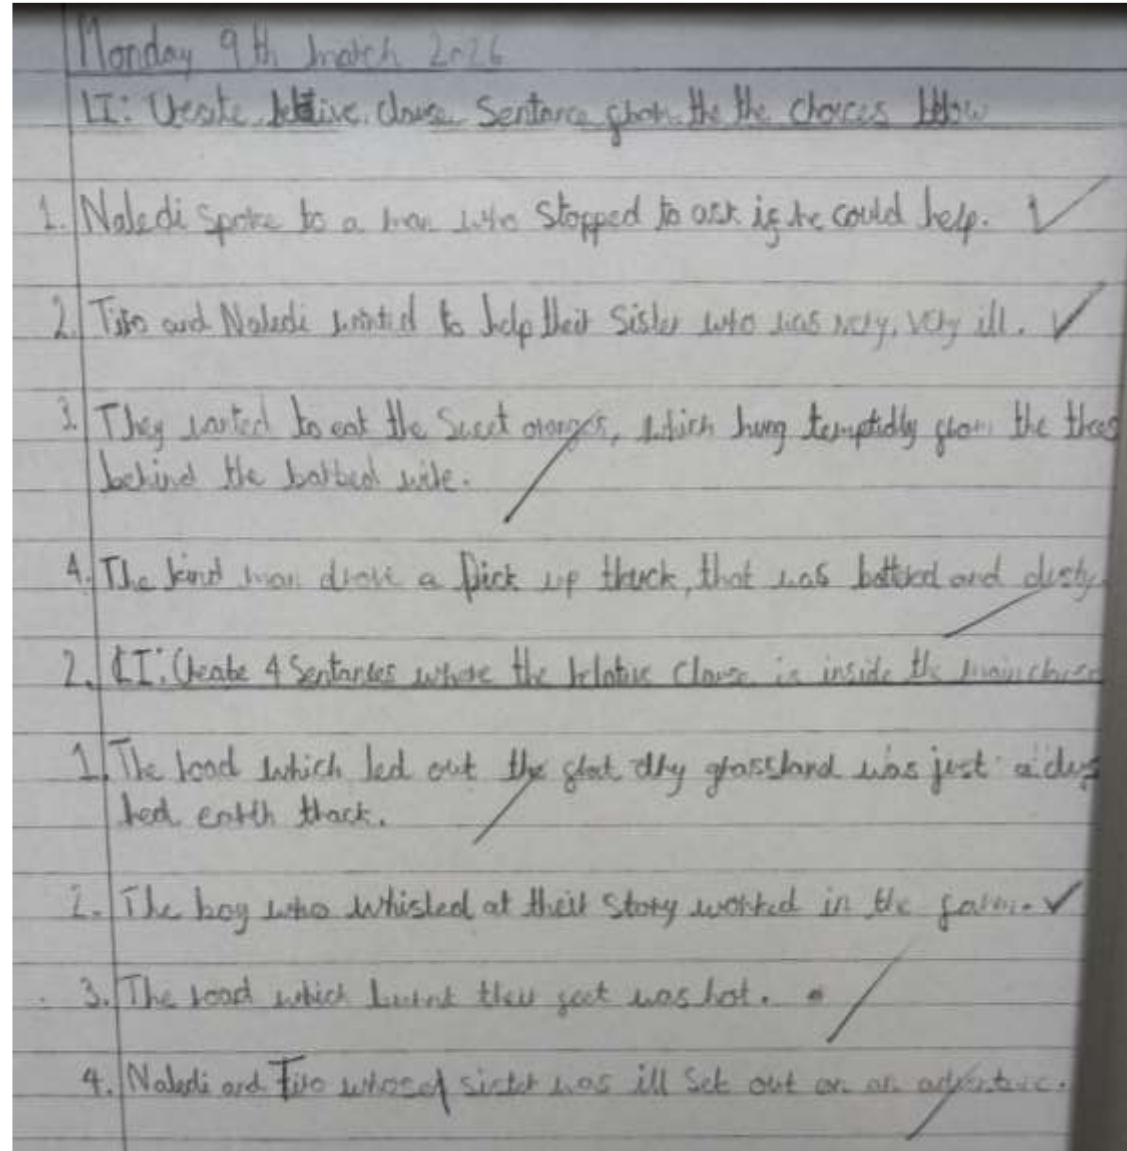 Monday 9th march 2026
LI: Create relative clause Sentence from the the choices below
1. Naledi spoke to a man who stopped to ask if he could help.
2. Tiro and Naledi wanted to help their Sister who was very, very ill.
3. They wanted to eat the Sweet oranges, which hung temptidly from the trees
behind the barbed wire.
4. The kind man drove a Pick up truck, that was battered and dusty
2. LI: Create 4 Sentances where the relative Clause is inside the main clause
1. The road which led out the flat dry grassland was just a
red earth track.
2. The boy who whisled at their story worked in the farm.
3. The road which burnt their feet was hot.
4. Naledi and Tiro whose sister was ill Set out on an adventure.